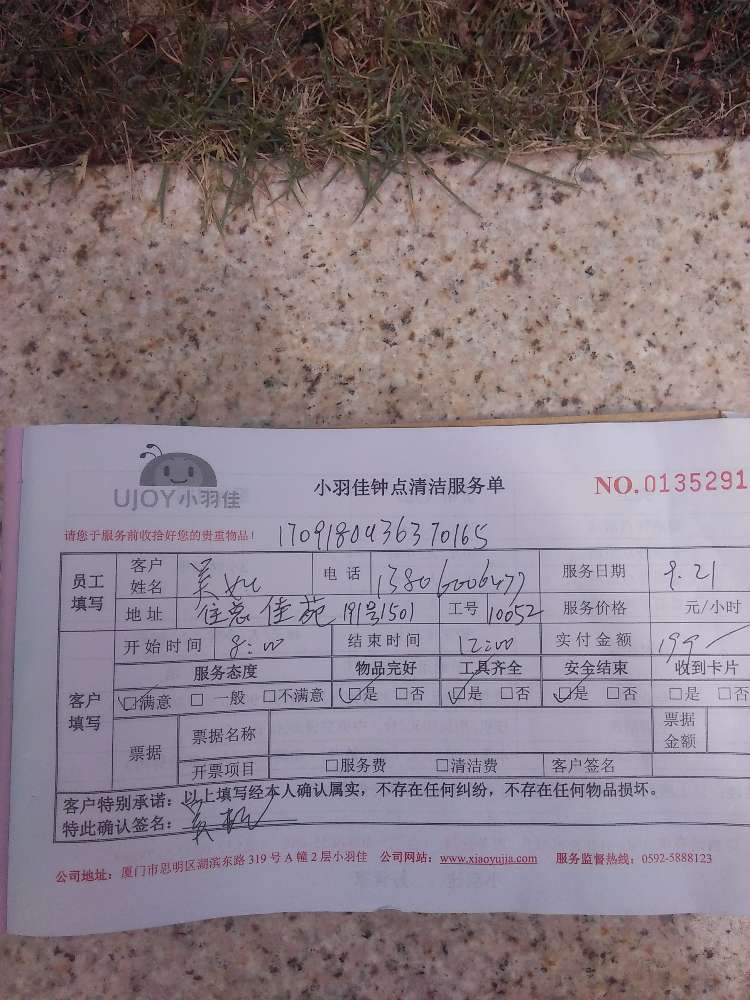 UJOY小羽佳
小羽佳钟点清洁服务单
NO.0135291
请您于服务前收拾好您的贵重物品! 1709180436370165
员工填写 客户姓名 吴 电话 13806006477 服务日期 9.21
地址 佳苑191号1501 工号 10052 服务价格 元/小时
客户填写 开始时间 8:00 结束时间 12:00 实付金额 199
服务态度 物品完好 工具齐全 安全结束 收到卡片
☑满意 □一般 □不满意 ☑是 □否 ☑是 □否 ☑是 □否 □是 □否
票据 票据名称 票据金额
开票项目 □服务费 □清洁费 客户签名
客户特别承诺：以上填写经本人确认属实，不存在任何纠纷，不存在任何物品损坏。
特此确认签名：吴
公司地址：厦门市思明区湖滨东路319号A幢2层小羽佳 公司网站：www.xiaoyujia.com 服务监督热线：0592-5888123